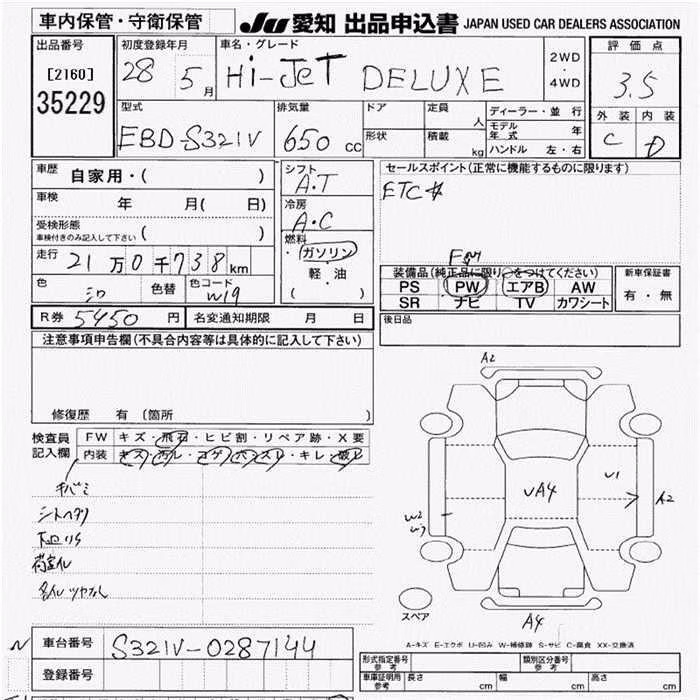 車内保管・守衛保管
JU 愛知 出品申込書 JAPAN USED CAR DEALERS ASSOCIATION
出品番号
[2160]
35229
初度登録年月
28 5月
車名・グレード
Hi-JeT DELUXE
2WD
・
4WD
評価点
3.5
外装 内装
C D
型式
EBD-S321V
排気量
650 cc
ドア
定員
人
形状
積載
kg
ディーラー・並行
モデル年式 年
ハンドル 左・右
車歴
自家用・( )
車検
年 月( 日)
受検形態
車検付きのみ記入して下さい ( )
走行 21万0千738km
色 シロ 色替 色コード W19
シフト
A・T
冷房
A・C
燃料
・ガソリン
軽・油
( )
セールスポイント(正常に機能するものに限ります)
ETC
装備品(純正品に限り○をつけてください)
PS PW エアB AW
SR ナビ TV カワシート
新車保証書
有・無
R券 5450円 名変通知期限 月 日
後日品
注意事項申告欄(不具合内容等は具体的に記入して下さい)
修復歴 有 〔箇所 〕
検査員記入欄
FW キズ・飛石・ヒビ割・リペア跡・X要
内装 キズ・汚レ・コゲ・穴・スレ・キレ・破レ
キバミ
シートヘタリ
A2
U1
UA4
A2
W2
W3
A4
スペア
A-キズ E-エクボ U-凹み W-補修跡 S-サビ C-腐食 XX-交換済
N 車台番号 S321V-0287144
登録番号
形式指定番号参考
類別区分番号参考
車庫証明用参考 長さ cm 幅 cm 高さ cm